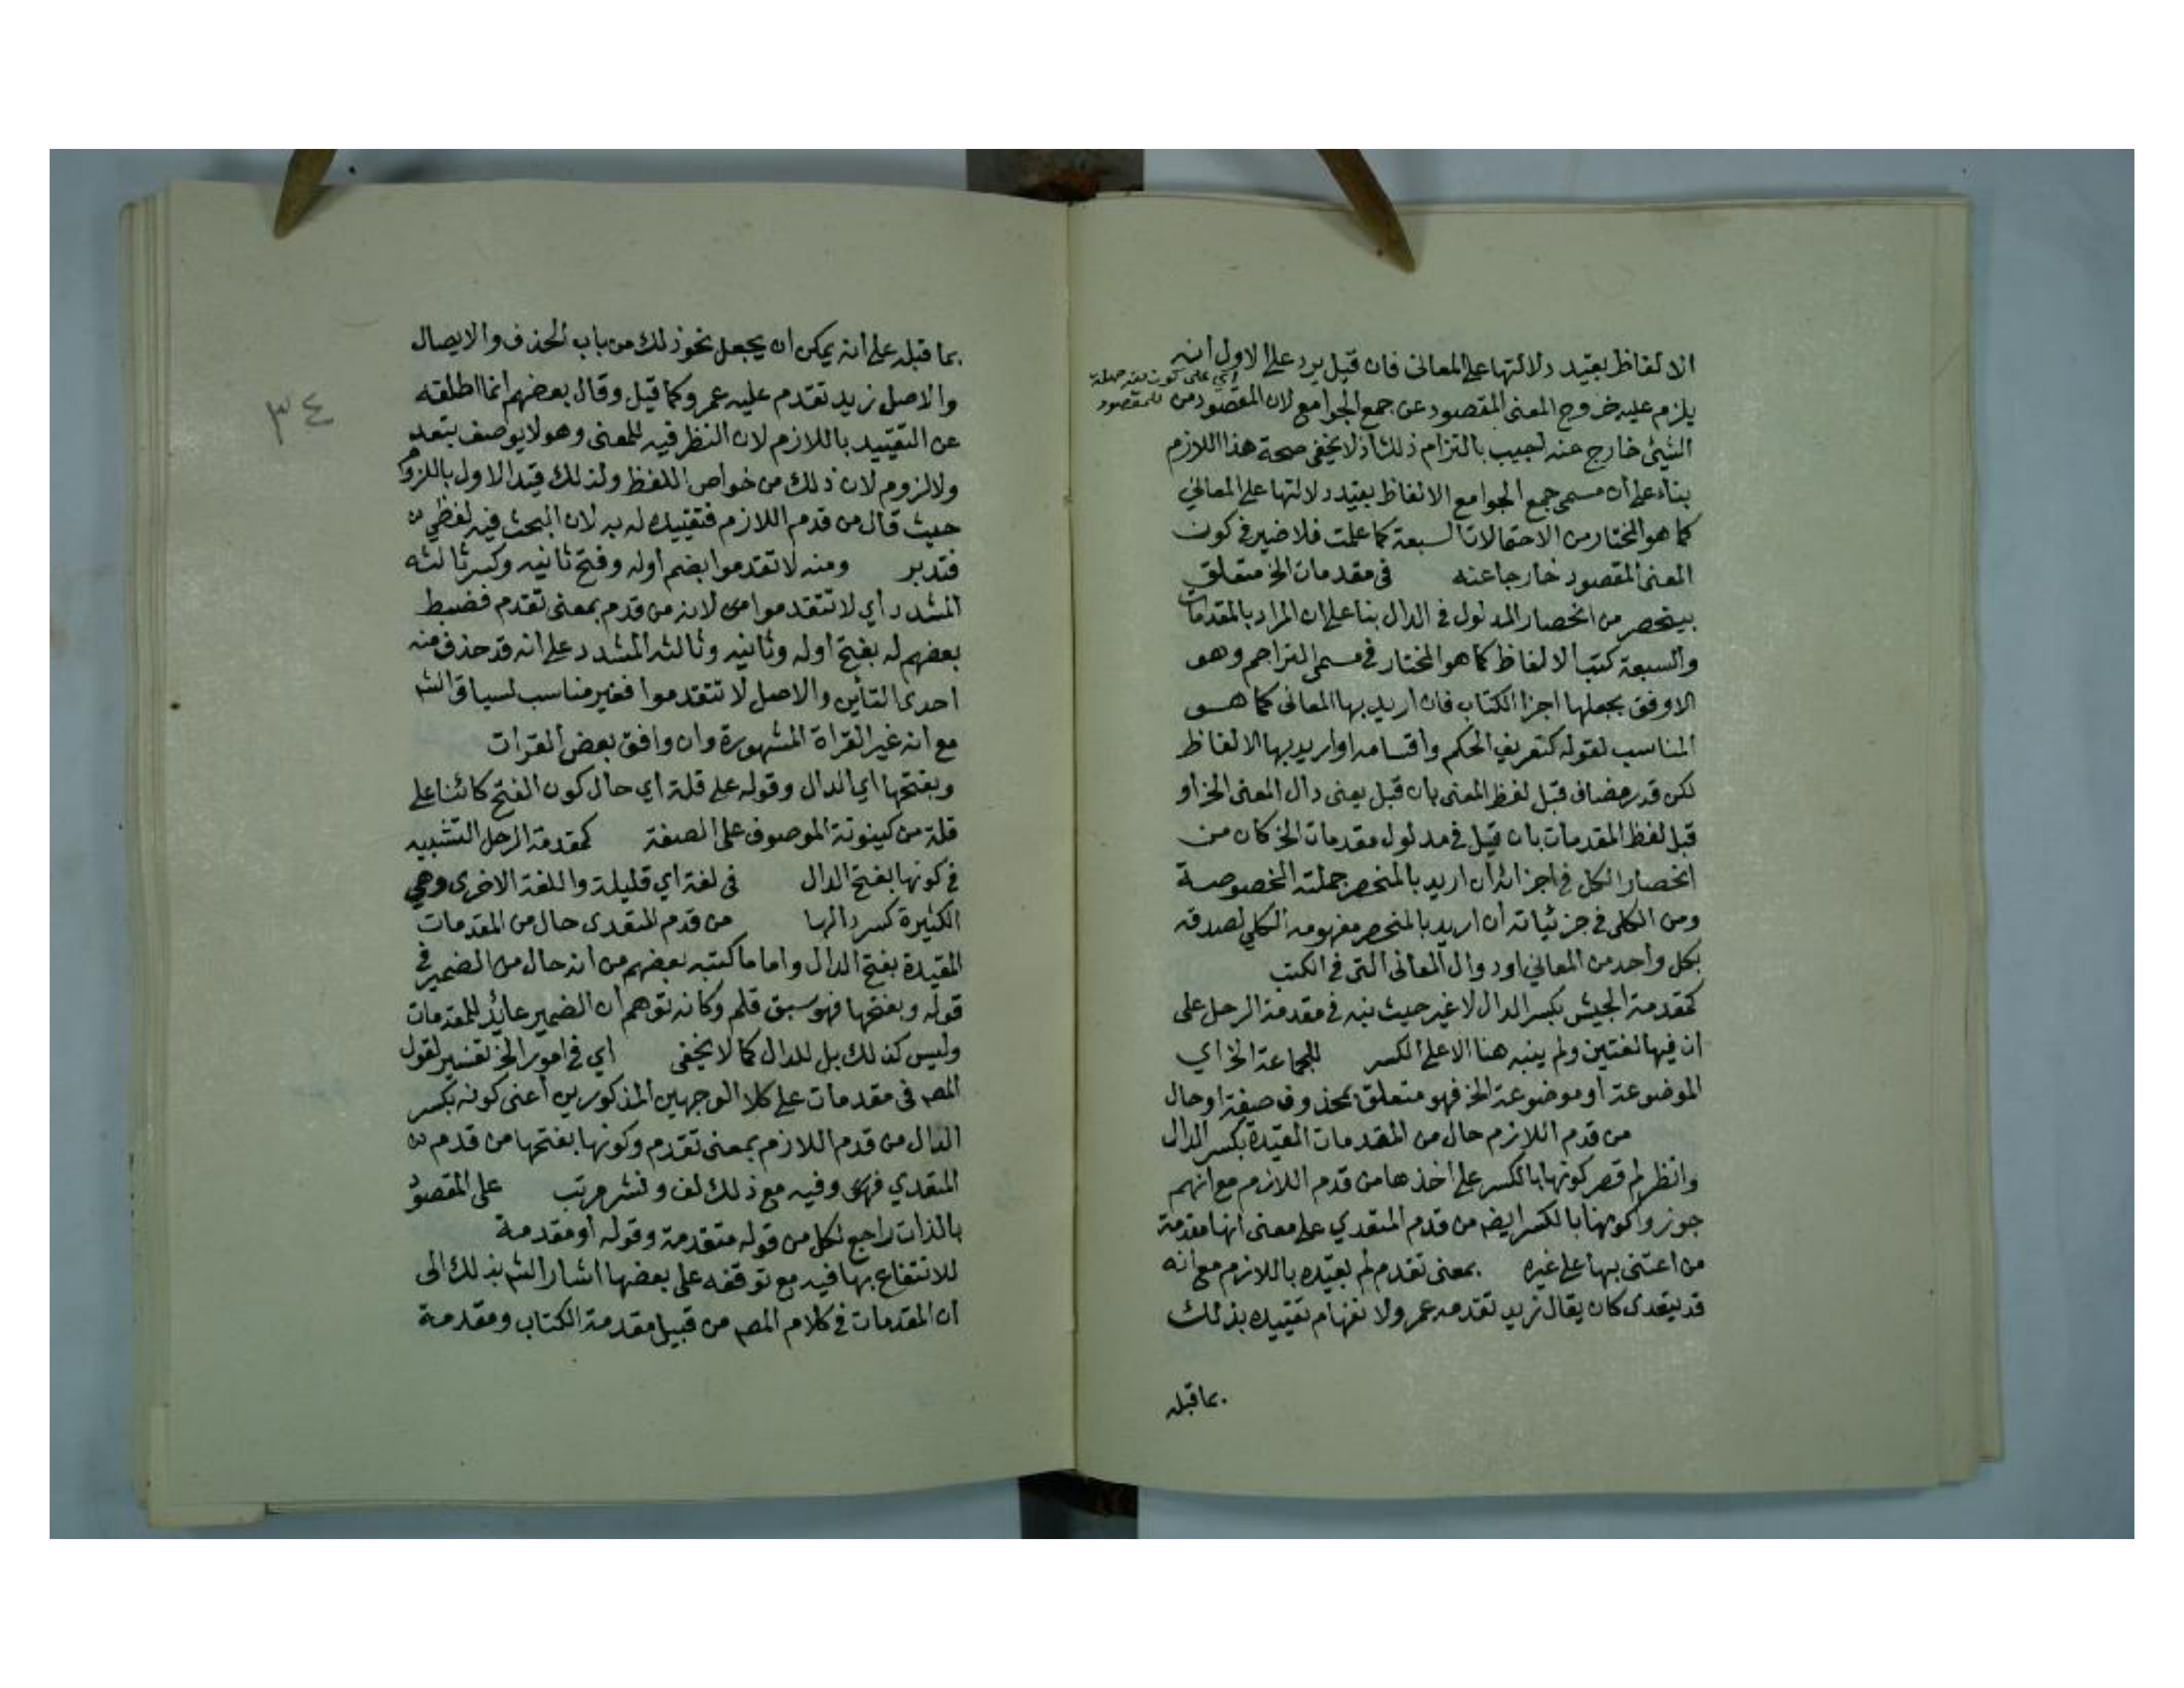 الالفاظ بقيد دلالتها على المعانى فان قيل يرد على الاول انه
اي على كون
للمقصود
يلزم عليه خروج المعنى المقصود عن جمع الجوامع لان المقصود من
الشيئ خارج عنه اجيب بالتزام ذلك اذ لا يخفى صحة هذا اللازم
بناء على ان مسمى جمع الجوامع الالفاظ بقيد دلالتها على المعاني
كما هو المختار من الاحتمالات السبعة كما علمت فلا ضير في كون
المعنى المقصود خارجا عنه في مقدمات الخ متعلق
بينحصر من انحصار المدلول في الدال بنا على ان المراد بالمقدمات
والسبعة كتب الالفاظ كما هو المختار في مسمى التراجم وهو
الاوفق بجعلها اجزا الكتاب فان اريد بها المعانى كما هو
المناسب لقوله كتعريف الحكم واقسامه او اريد بها الالفاظ
لكن قدر مضاف قبل لفظ المعنى بان قيل يعنى دال المعنى الخ او
قبل لفظ المقدمات بان قيل في مدلول مقدمات الخ كان من
انحصار الكل في اجزائه ان اريد بالمنحصر جملته المخصوصة
ومن الكلى في جزئياته ان اريد بالمنحصر مفهومه الكلي لصدقه
بكل واحد من المعاني او دوال المعانى التى في الكتب
كمقدمة الجيش بكسر الدال لا غير حيث نبه في مقدمة الرحل على
ان فيها لغتين ولم ينبه هنا الا على الكسر للجماعة الخ اي
الموضوعة او موضوعة الخ فهو متعلق بمحذوف صفة او حال
من قدم اللازم حال من المقدمات المقيدة بكسر الدال
وانظر لم قصر كونها بالكسر على اخذها من قدم اللازم مع انهم
جوزوا كونها بالكسر ايضا من قدم المتعدي على معنى انها مقدمة
من اعتنى بها على غيره بمعنى تقدم لم يقيده باللازم مع انه
قد يتعدى كان يقال زيد تقدمه عمرو لانفهام تقييده بذلك
بما قبله
بما قبله على انه يمكن ان يجعل نحو ذلك من باب الحذف والايصال
والاصل زيد تقدم عليه عمرو كما قيل وقال بعضهم انما اطلقه
٣٤
عن التقييد باللازم لان النظر فيه للمعنى وهو لا يوصف بتعد
ولا لزوم لان ذلك من خواص اللفظ ولذلك قيد الاول باللزوم
حيث قال من قدم اللازم فتقييده له به لان البحث فيه لفظي
فتدبر ومنه لا تقدموا بضم اوله وفتح ثانيه وكسر ثالثه
المشدد اي لا تتقدموا لانه من قدم بمعنى تقدم فضبط
بعضهم له بفتح اوله وثانيه وثالثه المشدد على انه قد حذف منه
احدى التأين والاصل لا تتقدموا فغير مناسب لسياق الشم
مع انه غير القراة المشهورة وان وافق بعض القرات
وبفتحها اي الدال وقوله على قلة اي حال كون الفتح كائنا على
قلة من كينونة الموصوف على الصفة كمقدمة الرحل التشبيه
في كونها بفتح الدال في لغة اي قليلة واللغة الاخرى وهي
الكثيرة كسر دالها من قدم المتعدى حال من المقدمات
المقيدة بفتح الدال واما ما كتبه بعضهم من انه حال من الضمير في
قوله وبفتحها فهو سبق قلم وكانه توهم ان الضمير عائد للمقدمات
وليس كذلك بل للدال كما لا يخفى اي في امور الخ تفسير لقول
المصم في مقدمات على كلا الوجهين المذكورين اعنى كونه بكسر
الدال من قدم اللازم بمعنى تقدم وكونها بفتحها من قدم
المتعدي وفيه مع ذلك لف ونشر مرتب على المقصود
بالذات راجع لكل من قوله متقدمة وقوله او مقدمة
للانتفاع بها فيه مع توقفه على بعضها اشار الشم بذلك الى
ان المقدمات في كلام المصم من قبيل مقدمة الكتاب ومقدمة